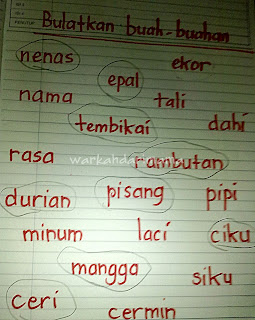 Bulatkan buah-buahan
nenas ekor
epal
nama tali
tembikai dahi
rasa rambutan
durian pisang pipi
minum laci ciku
mangga siku
ceri cermin